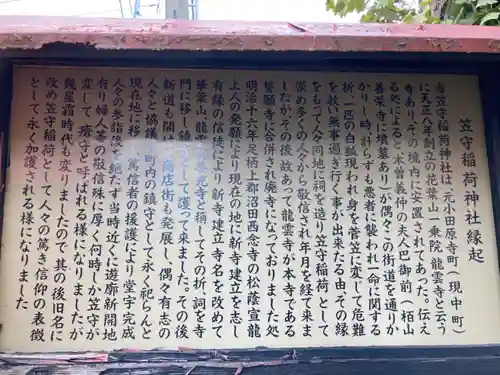 笠守稲荷神社縁起
当笠守稲荷神社は、元小田原寺町(現中町)
に天正八年創立の花葉山一乗院龍雲寺と云う
寺あり、その境内に安置されてあった。伝え
る処によると木曽義仲の夫人巴御前(栢山
善栄寺に墳墓あり)が偶々この街道を通りか
かり、時、計らずも悪者に襲われ一命に関する
折、一匹の白狐現われ身を菅笠に変じて危難
を救い無事過ぎ行く事が出来たる由、その縁
をもって人々同地に祠を造り笠守稲荷として
崇め多くの人々から敬信され年月を経て来ま
したがその後故あって龍雲寺が本寺である
誓願寺に合併され廃寺になっておりました処
明治十六年足柄上郡沼田西念寺の松蔭宣龍
上人の発願により現在の地に新寺建立を志し
有縁の信徒により新寺建立寺名を改めて
華葉山龍雲院蓮光寺と称してその折、祠を寺
門に移し鎮守として護って来ました。その後
新道も開け商店街も発展し、偶々有志の
人々と協議、町内の鎮守として永く祀らんと
現在地に移し、篤信者の援護により堂宇完成
人々の参詣後を絶たず当時近くに遊廓新開地
有り婦人等の敬信殊に厚く何時しか笠守が
変じて瘡守と呼ばれる様になりましたが
幾星霜時代も変りましたので其の後旧名に
改め笠守稲荷として人々の篤き信仰の表徴
として永く加護される様になりました